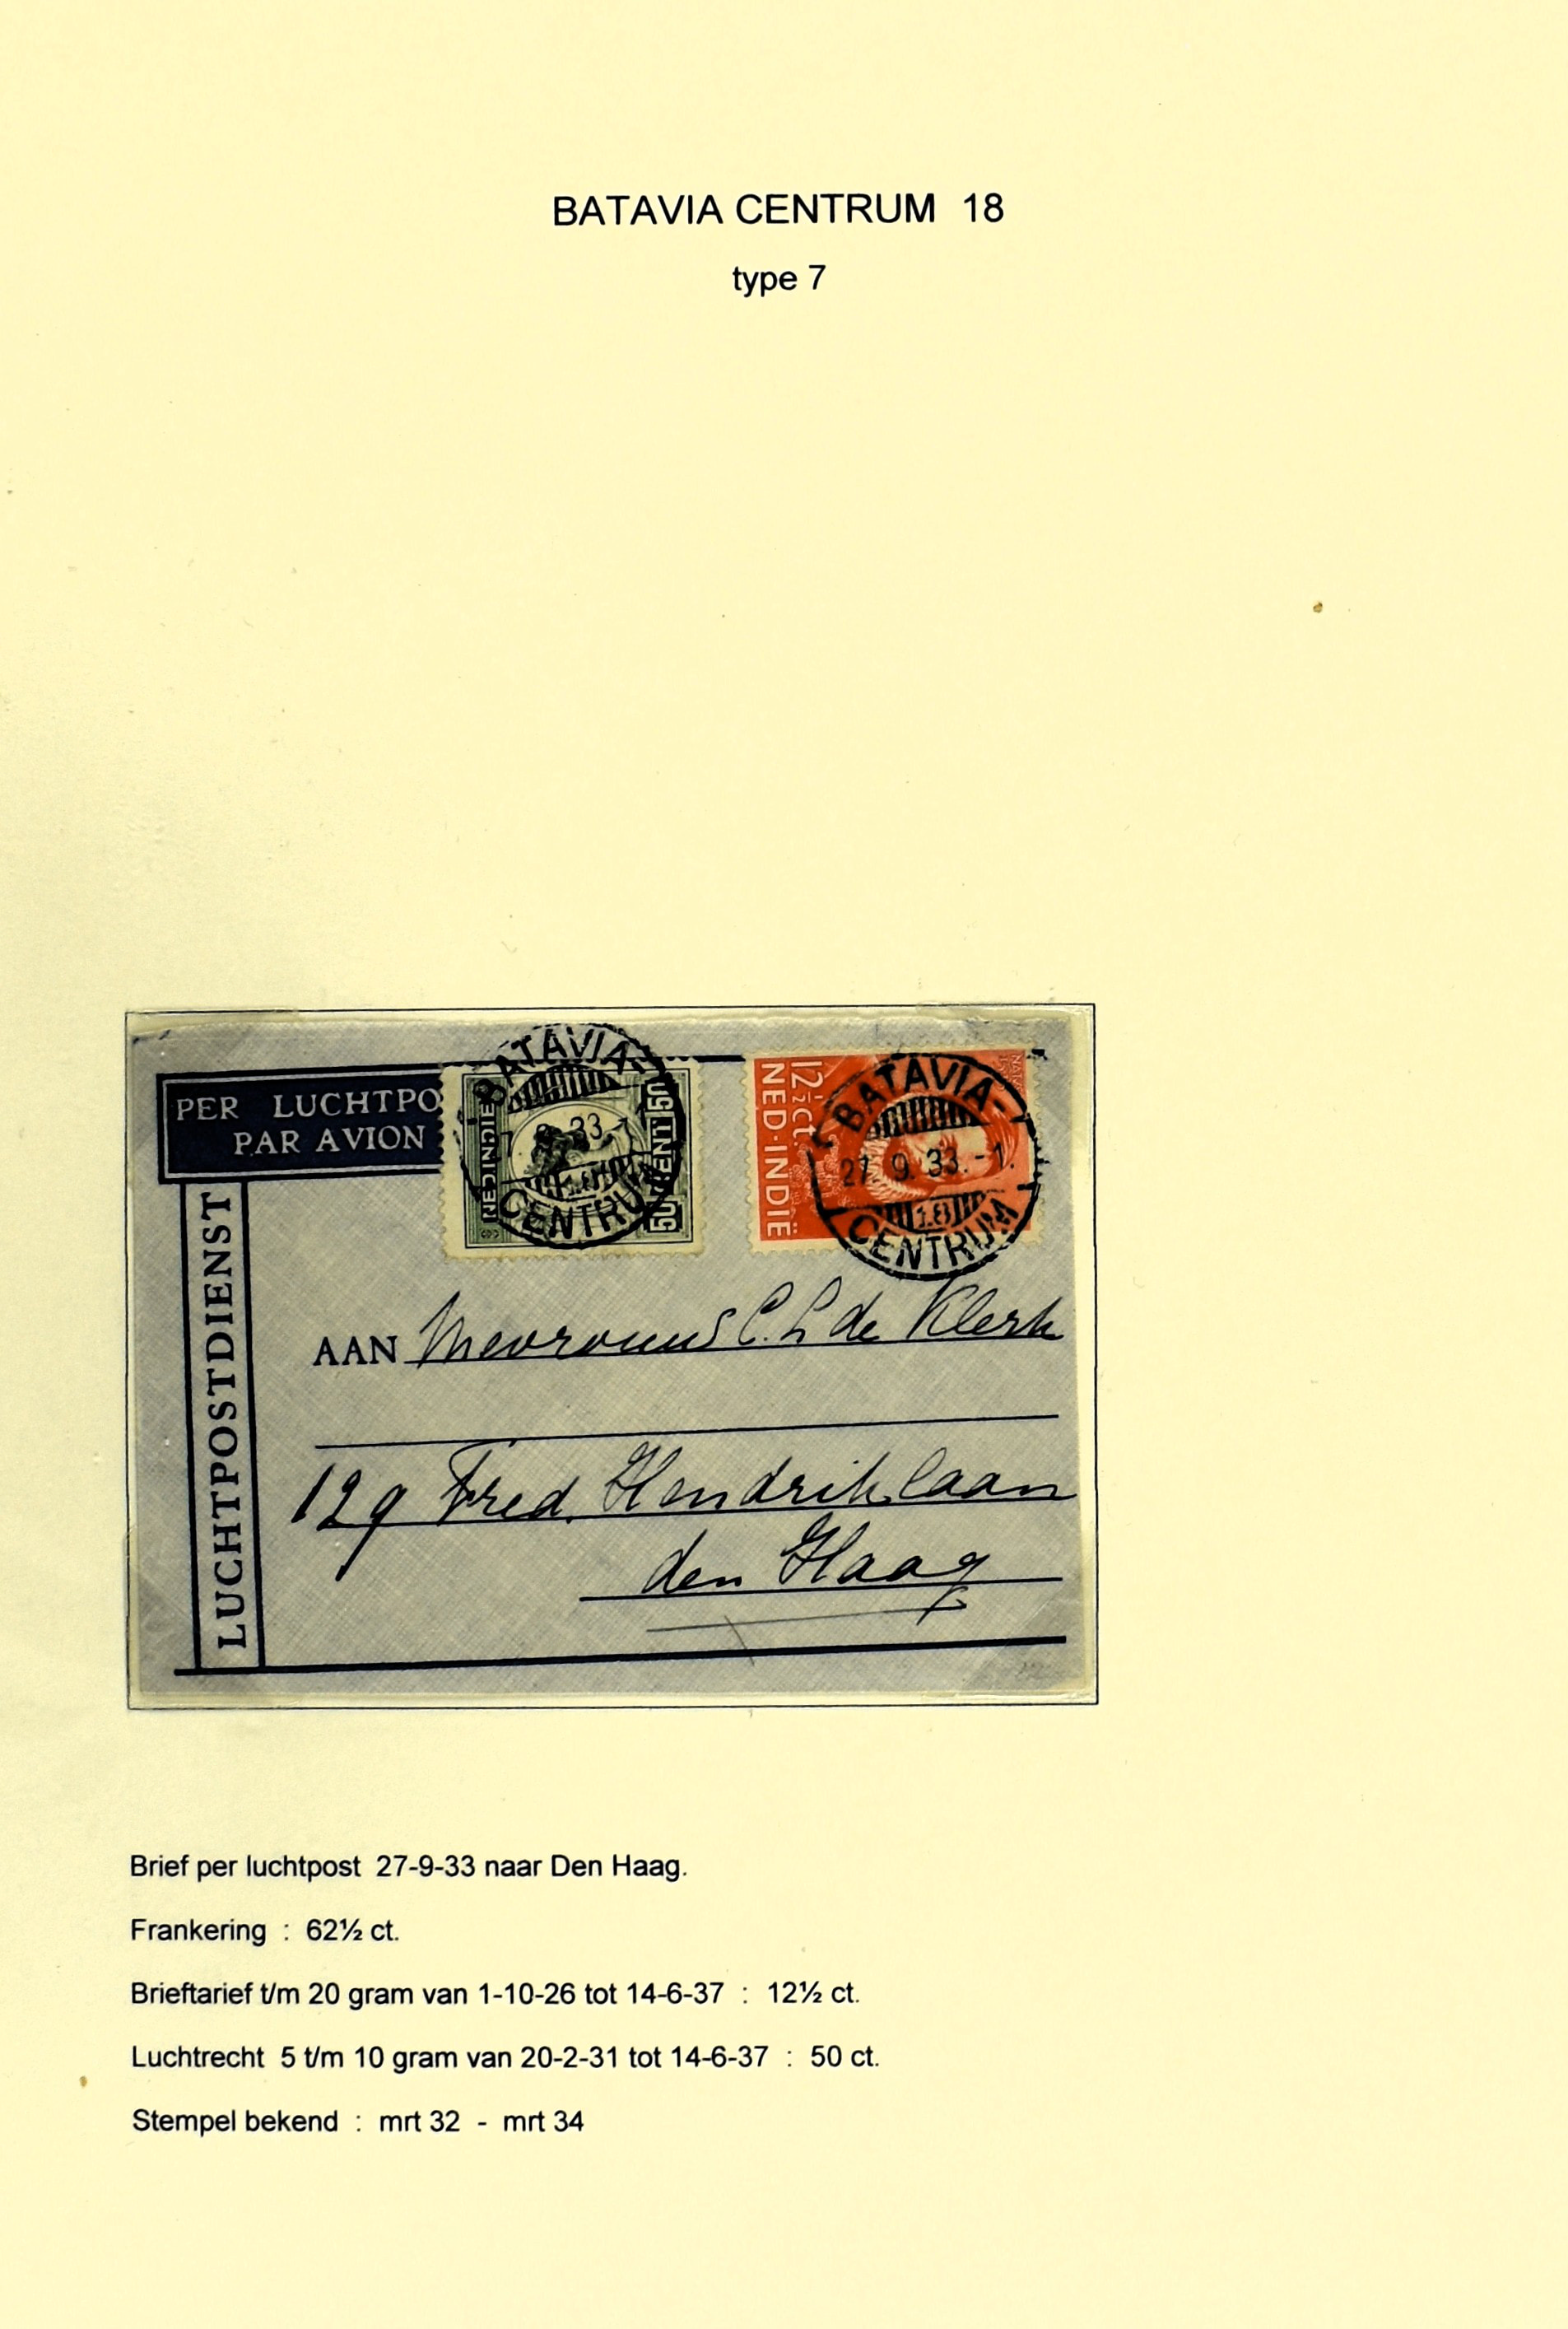 BATAVIA CENTRUM 18
type 7
PER LUCHTPO
PAR AVION
LUCHTPOSTDIENST
NED·INDIË
50 CENT 50
BATAVIA
33
18
CENTRUM
12½ ct.
NED·INDIË
BATAVIA-
27. 9. 33.-1.
18
CENTRUM
AAN Mevrouw C. L de Klerk
129 Fred. Hendriklaan
den Haag
Brief per luchtpost 27-9-33 naar Den Haag.
Frankering : 62½ ct.
Brieftarief t/m 20 gram van 1-10-26 tot 14-6-37 : 12½ ct.
Luchtrecht 5 t/m 10 gram van 20-2-31 tot 14-6-37 : 50 ct.
Stempel bekend : mrt 32 - mrt 34